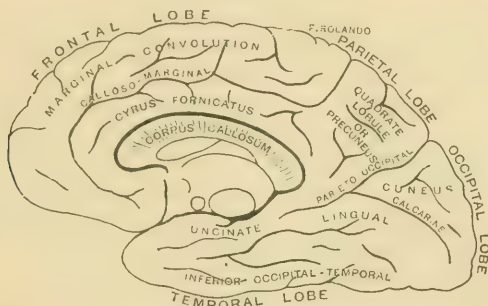 FRONTAL LOBE
F. ROLANDO
PARIETAL LOBE
MARGINAL CONVOLUTION
CALLOSO-MARGINAL
GYRUS FORNICATUS
CORPUS CALLOSUM
QUADRATE
LOBULE
OR
PRECUNEUS
PARIETO OCCIPITAL
OCCIPITAL LOBE
CUNEUS
CALCARINE
LINGUAL
UNCINATE
INFERIOR-OCCIPITAL-TEMPORAL
TEMPORAL LOBE